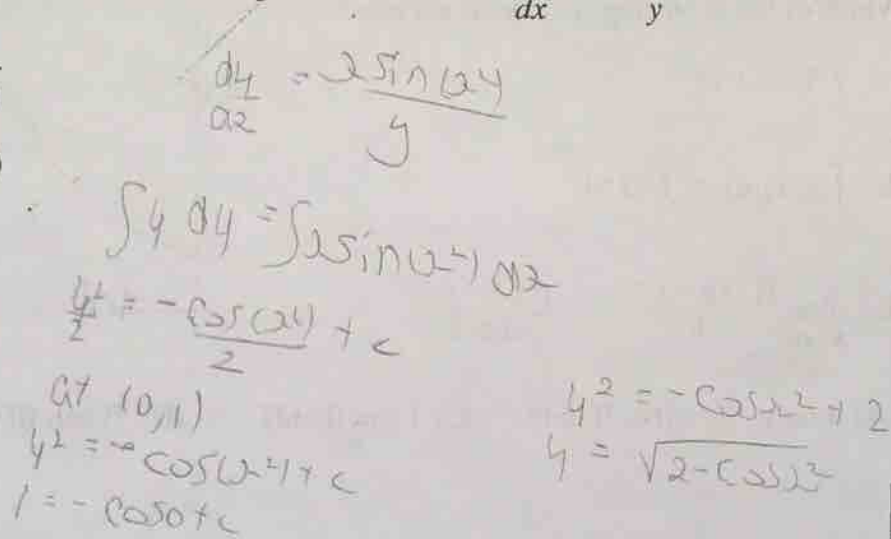 dx y
dy/dx = x sin(x²)/y
∫y dy = ∫x sin(x²) dx
y²/2 = -cos(x²)/2 + c
at (0,1)
y² = -cos(x²) + c
1 = -cos0 + c
y² = -cos x² + 2
y = √(2-cos x²)